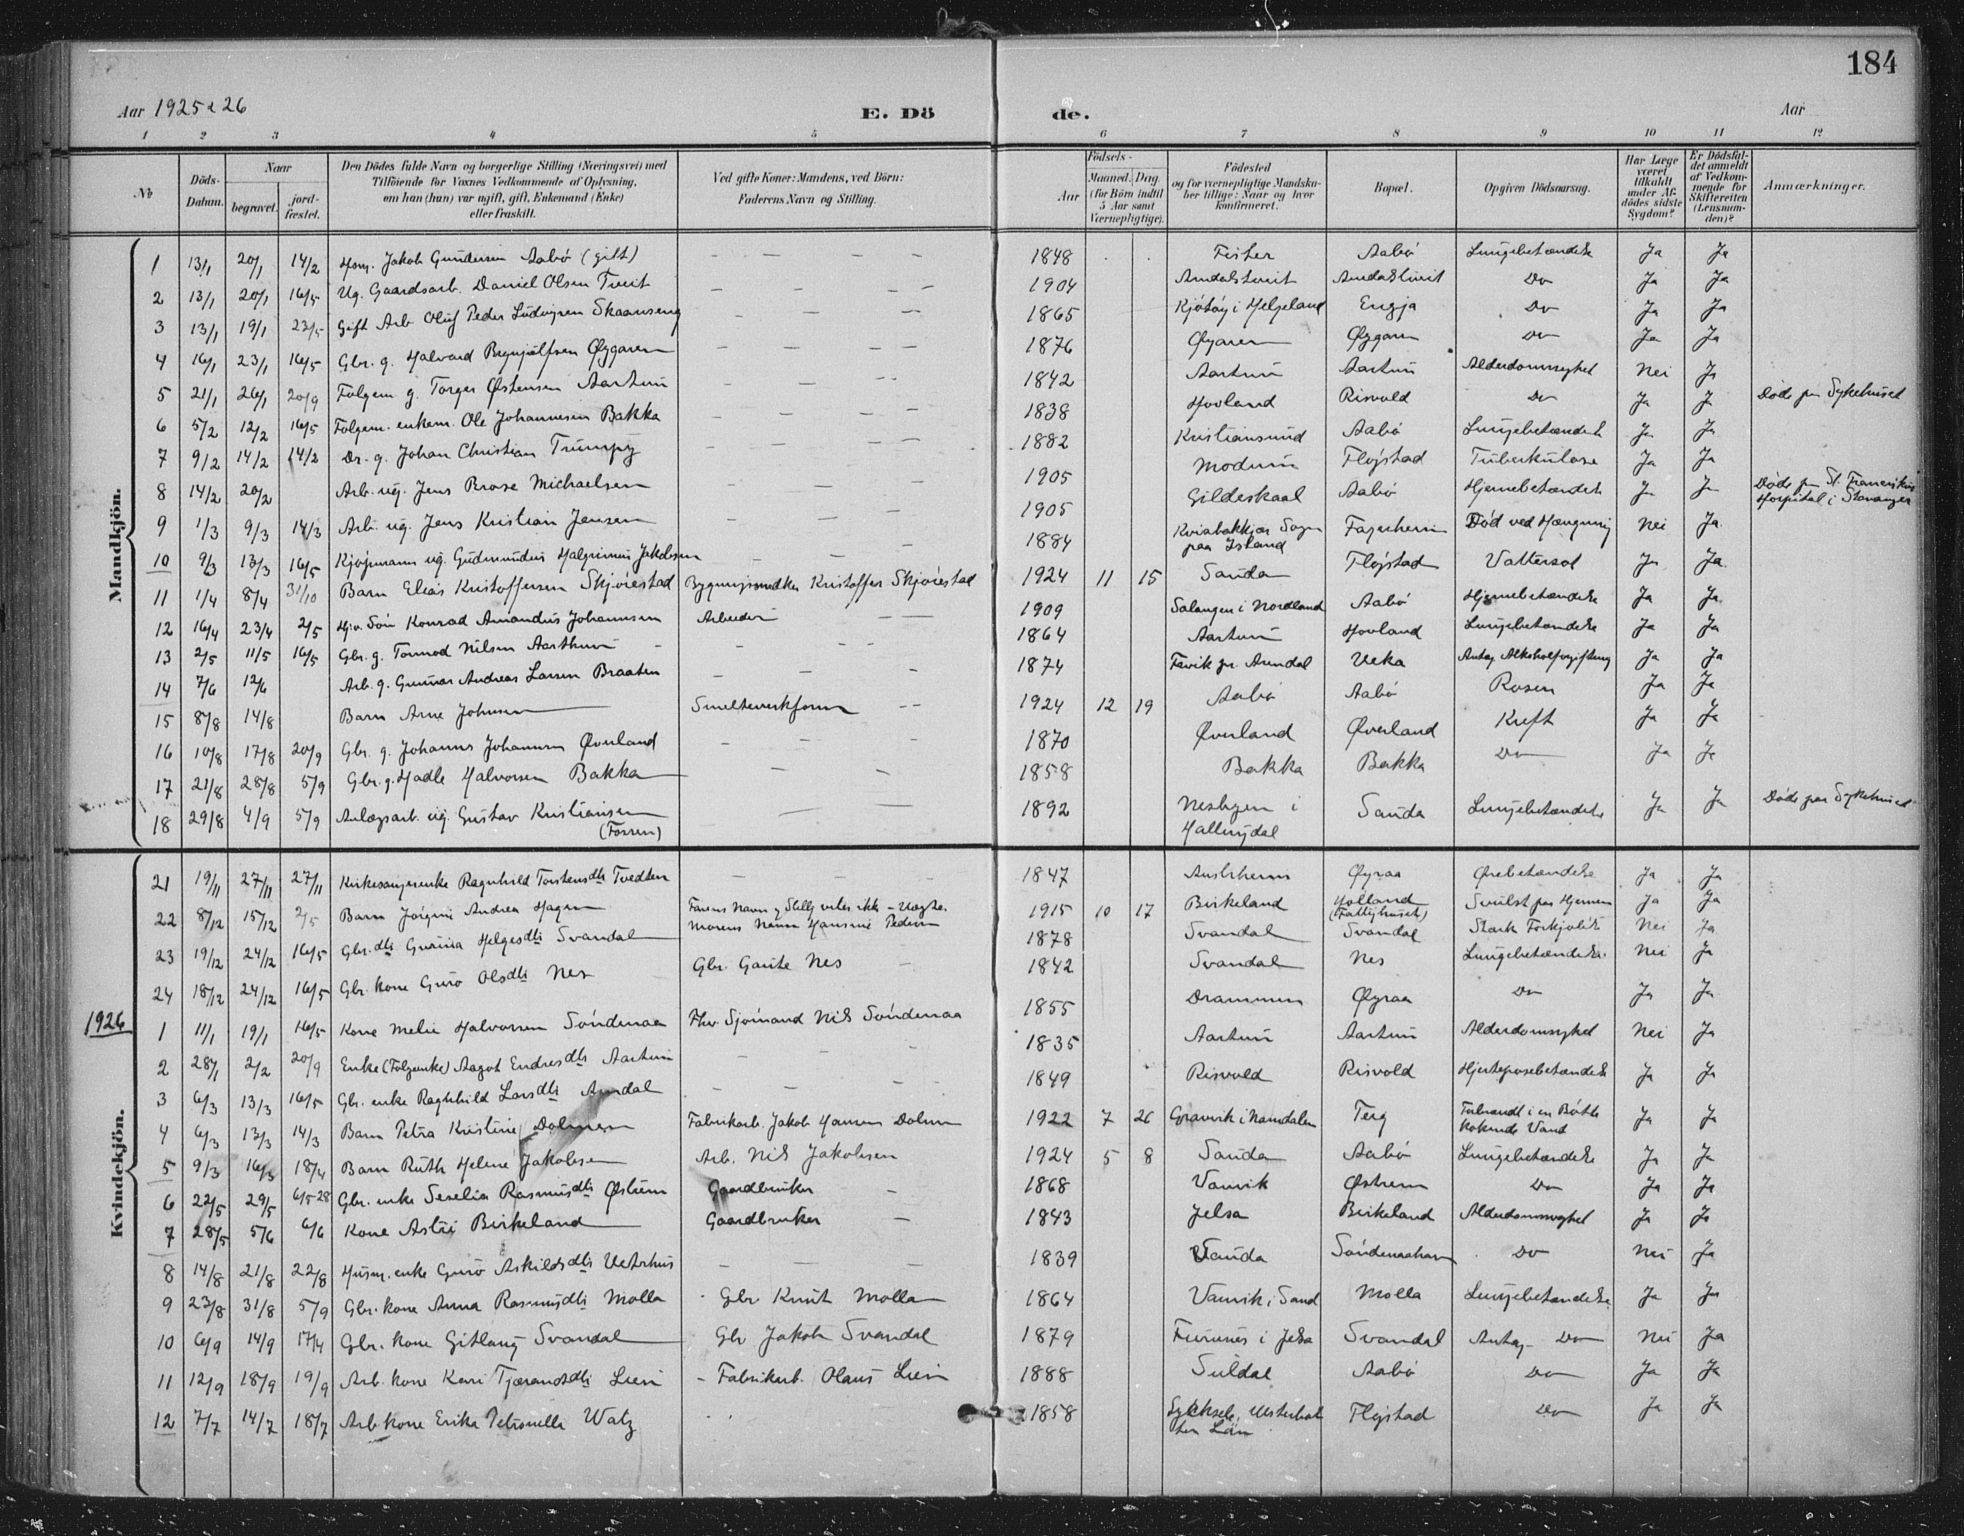 184
Aar 1925 & 26
E. Dö de.
Aar
1 2 3 4 5 6 7 8 9 10 11 12
No
Döds-Datum.
Naar
begravet.
jord-fæstet.
Den Dödes fulde Navn og borgerlige Stilling (Næringsvei) med
Tilföiende for Voxnes Vedkommende af Oplysning,
om han (hun) var ugift, gift, Enkemand (Enke)
eller fraskilt.
Ved gifte Koner: Mandens, ved Börn:
Faderens Navn og Stilling.
Födsels-
Aar
Maaned. Dag.
(for Börn indtil
5 Aar samt
Værnepligtige).
Födested
og for værnepligtige Mandska-
ber tillige: Naar og hvor
konfirmeret.
Bopæl.
Opgiven Dödsaarsag.
Har Læge
været
tilkaldt
under Af-
dödes sidste
Sygdom?
Er Dödsfal-
det anmeldt
af Vedkom-
mende for
Skifteretten
(Lensman-
den)?
Anmærkninger.
Mandkjön.
1 13/1 20/1 14/2 Hsm. Jakob Gundersen Aabø (gift) 1848 Fister Aabø Lungebetændelse Ja Ja
2 13/1 20/1 16/5 Ug. Gaardsarb. Daniel Olsen Tveit 1904 Amdalstveit Amdalstveit Do Ja Ja
3 13/1 19/1 23/5 Gift Arb Oluf Peder Ludvigsen Skaanseng 1865 Kjøtøy i Helgeland Engja Do Ja Ja
4 16/1 23/1 16/5 Gbr. g. Halvard Brynjulfsen Øygaren 1876 Øyaren Øygaren Do Ja Ja
5 21/1 26/1 20/9 Folgem. g. Torger Østensen Aartun 1842 Aartun Aartun Alderdomssyghet Nei Ja
6 5/2 12/2 16/5 Folgem. enkem. Ole Johannesen Bakka 1838 Hovland Risvold Do Ja Ja Døde paa Sykehuset
7 9/2 14/2 14/2 Dr. g. Johan Christian Trumpy 1882 Kristiansund Aabø Lungebetændelse Ja Ja
8 14/2 20/2 Arb. ug. Jens Brose Michaelsen 1905 Modum Fløgstad Tuberkulose Ja Ja
9 1/3 9/3 14/3 Arb. ug. Jens Kristian Jensen 1905 Gildeskaal Aabø Hjernebetændelse Ja Ja Døde paa St. Franciskus Hospital i Stavanger
10 9/3 13/3 16/5 Kjøpmann ug. Gudmundur Halgrimur Jakobsen 1884 Sogn paa Island Fagerheim Død ved Hængning Nei Ja
11 1/4 8/4 31/10 Barn Elias Kristoffersen Skjørestad Bygningssnedker Kristoffer Skjørestad 1924 11 15 Sauda Fløgstad Vattersot Ja Ja
12 16/4 23/4 2/5 Hjv. Søn Konrad Amandus Johannsen Arbeider 1909 Salangen i Nordland Aabø Hjernebetændelse Ja Ja
13 2/5 11/5 16/5 Gbr. g. Tormod Nilsen Aarthun 1864 Aartun Hovland Lungebetændelse Ja Ja
14 7/6 12/6 Arb. g. Gunnar Andreas Larsen Braaten 1874 Fævik pr. Arendal Veka Antag. Alkoholforgiftning Ja Ja
15 8/8 14/8 Barn Arne Johnsen Smelteverksform 1924 12 19 Aabø Aabø Rosen Ja Ja
16 10/8 17/8 20/9 Gbr. g. Johannes Johannesen Øverland 1870 Øverland Øverland Kreft Ja Ja
17 21/8 28/8 5/9 Gbr. g. Hadle Halvorsen Bakka 1858 Bakka Bakka Do Ja Ja
18 29/8 4/9 5/9 Anlægsarb. ug. Gustav Kristiansen 1892 Nesbyen i Sauda Lungebetændelse Ja Ja Døde paa Sykehuset
(Forren) Hallingdal
Kvindekjön.
21 19/11 27/11 27/11 Kirkesangerenke Ragnhild Torstensdtr Tvedten 1847 Austrheim Øyraa Ørebetændelse Ja Ja
22 8/12 15/12 2/5 Barn Jørgine Andrea Hagen Farens Navn og Still. vites ikke – Uægte. 1915 10 17 Birkeland Holland Svulst paa Hjernen Ja Ja
Morens Navn Hansine Pedersen (Fattighuset)
23 19/12 24/12 16/5 Gbr. dtr Guriua Helgesdtr Svandal 1878 Svandal Svandal Stærk Forkjølelse Nei Ja
24 18/12 24/12 16/5 Gbr. kone Guro Olsdtr Nes Gbr. Gaute Nes 1842 Svandal Nes Lungebetændelse Nei Ja
1926
1 11/1 19/1 16/5 Kone Melie Halvorsen Søndenaa Fhv. Sjømand Nils Søndenaa 1855 Drammen Øyraa Do Ja Ja
2 28/1 2/2 20/9 Enke (Folgenke) Aagot Endresdtr Aartun 1835 Aartun Aartun Alderdomssyghet Nei Ja
3 6/3 13/3 16/5 Gbr. enke Ragnhild Larsdtr Amdal 1849 Risvold Risvold Hjerteposebetændelse Ja Ja
4 6/3 13/3 14/3 Barn Petra Kristine Dolmen Fabrikarb. Jakob Hansen Dolmen 1922 7 26 Gravvik i Namdalen Terg Forbrændt i en Bøtte Ja Ja
kokende Vand
5 9/3 16/3 18/4 Barn Ruth Helene Jakobsen Arb. Nils Jakobsen 1924 5 8 Sauda Aabø Lungebetændelse Ja Ja
6 22/5 29/5 6/5-28 Gbr. enke Serelia Rasmusdtr Østrem Gaardbruker 1868 Vanvik Østrem Do Ja Ja
7 28/5 5/6 6/6 Kone Astri Birkeland Gaardbruker 1843 Jelsa Birkeland Alderdomssyghet Ja Ja
8 14/8 21/8 22/8 Husm. enke Guro Askildsdtr Vetrhus 1839 Sauda Søndenaahavn Do Nei Ja
9 23/8 31/8 5/9 Gbr. kone Anna Rasmusdtr Molla Gbr Knut Molla 1864 Vanvik i Sand Molla Lungebetændelse Ja Ja
10 6/9 14/9 17/4 Gbr. kone Gitlaug Svandal Gbr Jakob Svandal 1879 Furunes i Jelsa Svandal Antag. Do Nei Ja
11 12/9 18/9 19/9 Arb. kone Kari Tjærandsdtr Lien Fabrikarb. Olaus Lien 1888 Suldal Aabø Do Ja Ja
12 7/7 14/7 18/7 Arb kone Erika Petronella Watz 1858 Lycksele, Vesterbotten Län Fløgstad Do Ja Ja